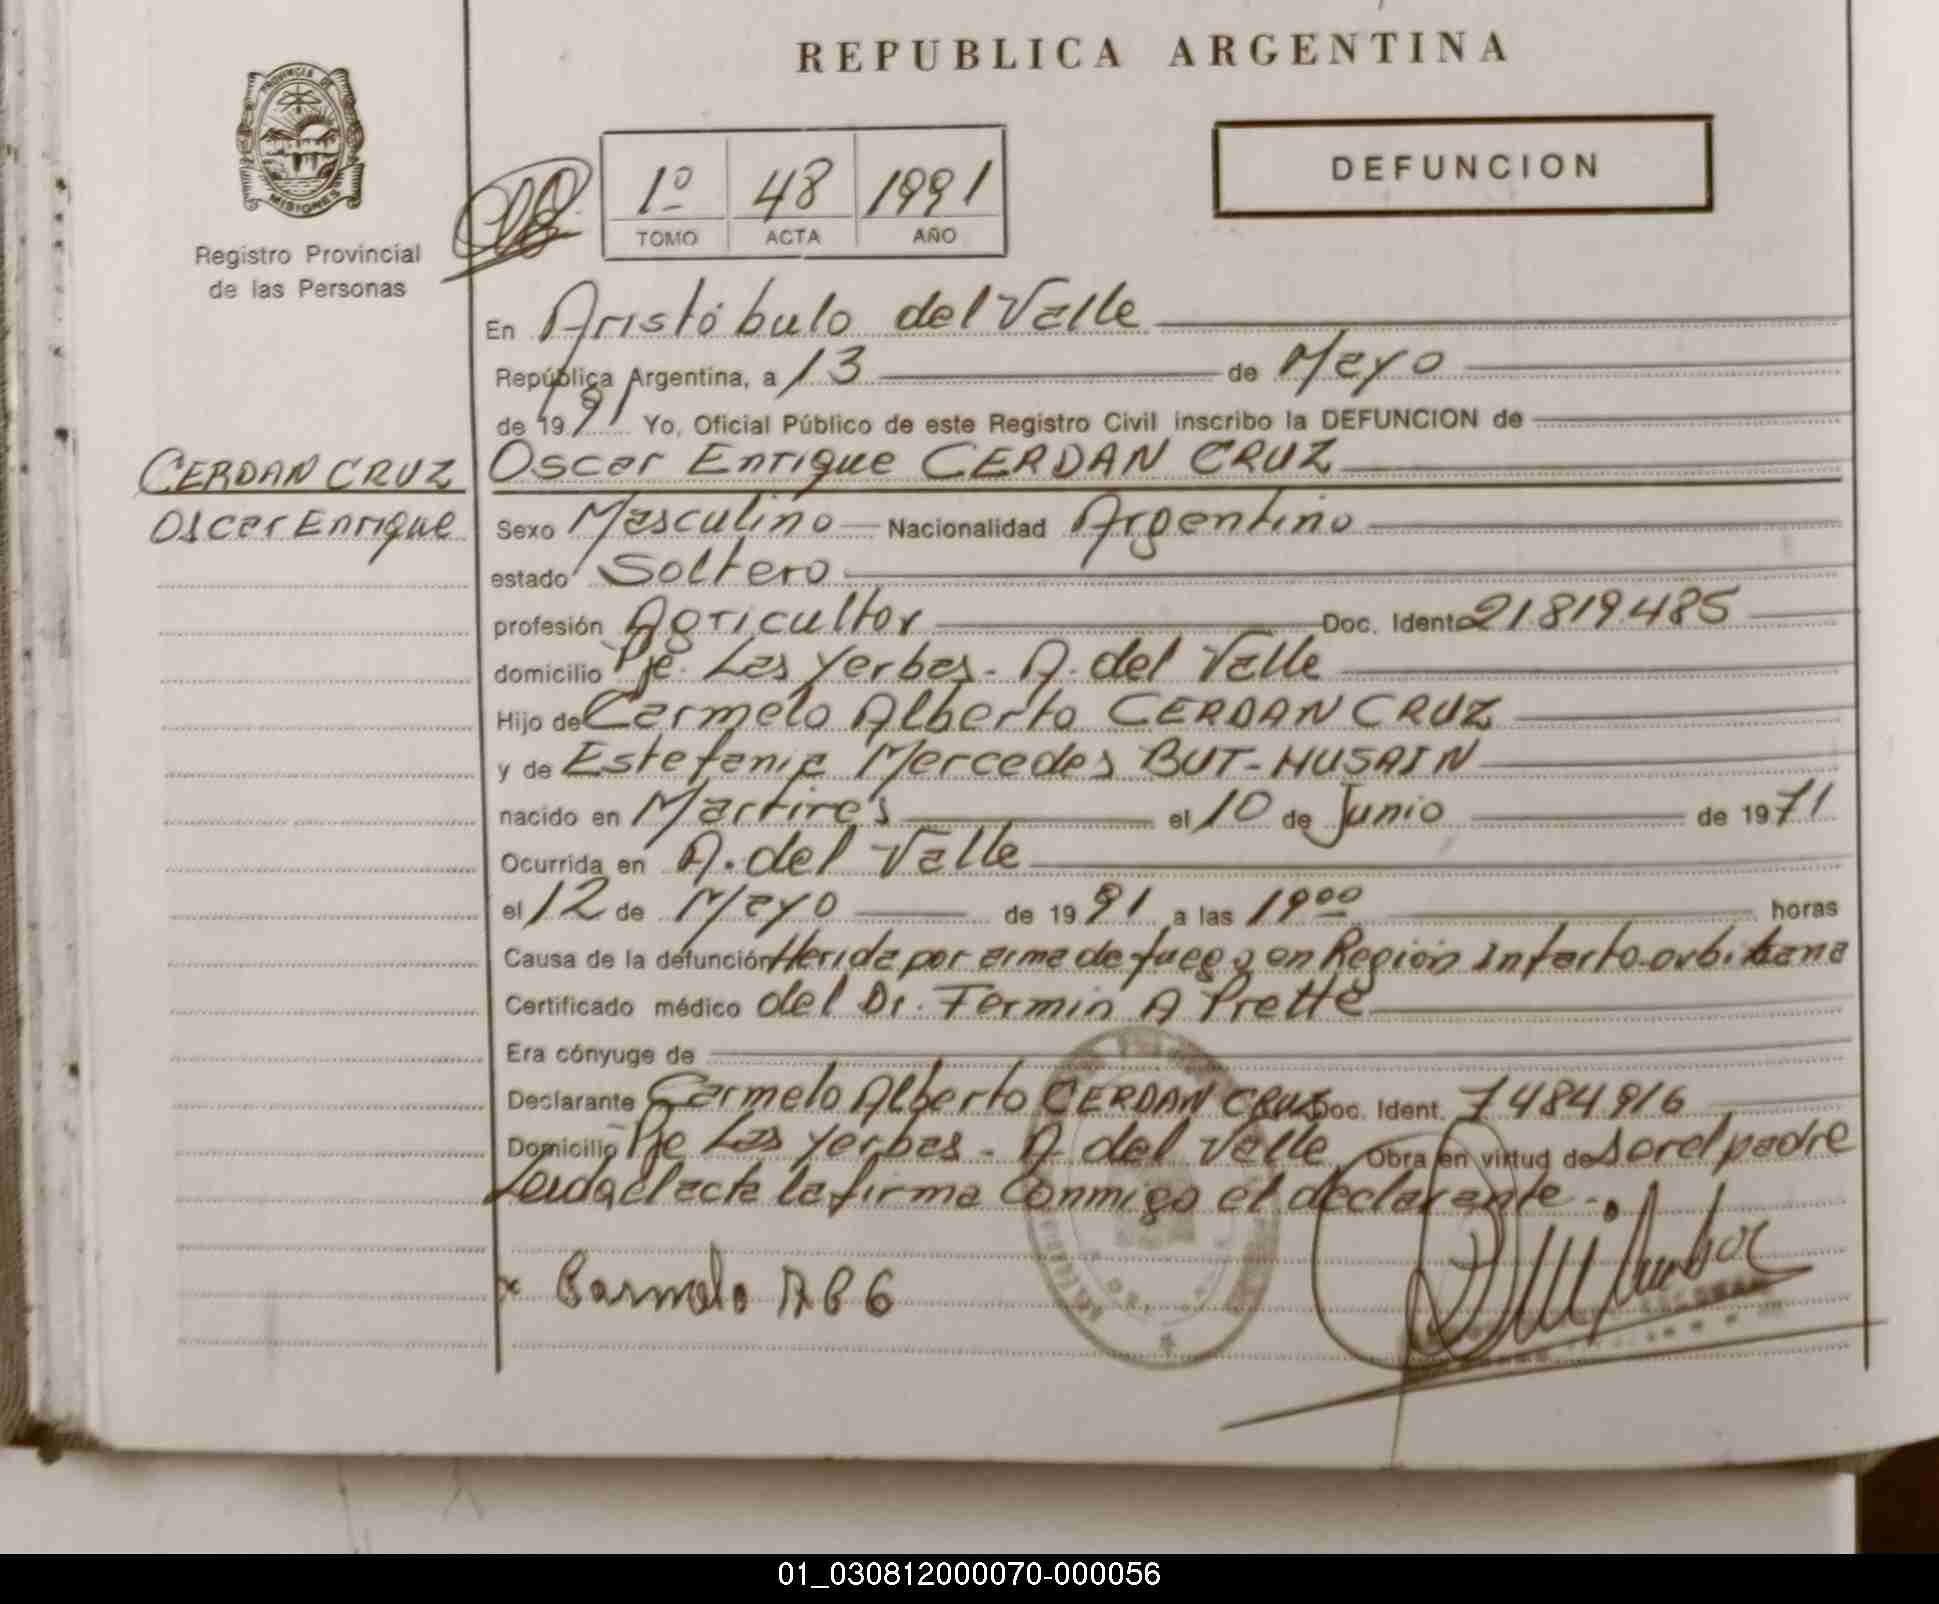 REPUBLICA ARGENTINA
PROVINCIA DE
MISIONES
Registro Provincial
de las Personas
1º 48 1991
TOMO ACTA AÑO
DEFUNCION
En Aristóbulo del Valle
República Argentina, a 13 de Mayo
de 1991 Yo, Oficial Público de este Registro Civil inscribo la DEFUNCION de
CERDAN CRUZ
Oscar Enrique
Oscar Enrique CERDAN CRUZ
Sexo Masculino Nacionalidad Argentino
estado Soltero
profesión Agricultor Doc. Ident. 21.819.485
domicilio Pje. Las Yerbas - A. del Valle
Hijo de Carmelo Alberto CERDAN CRUZ
y de Estefania Mercedes BUT-HUSAIN
nacido en Martires el 10 de Junio de 1971
Ocurrida en A. del Valle
el 12 de Mayo de 1991 a las 19ºº horas
Causa de la defunción Herida por arma de fuego en Región Infarto-orbitana
Certificado médico del Dr. Fermin A Prette
Era cónyuge de
Declarante Carmelo Alberto CERDAN CRUZ Doc. Ident. 7484916
Domicilio Pje Las Yerbas - A. del Valle Obra en virtud de ser el padre
Leida el acta la firma conmigo el declarante.
x Carmelo
01_030812000070-000056